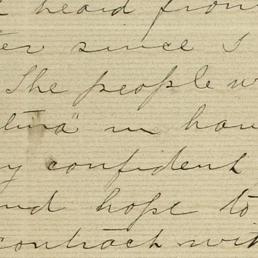 heard from
ter since I
The people w
" in han
y confident
and hope to
contract wit